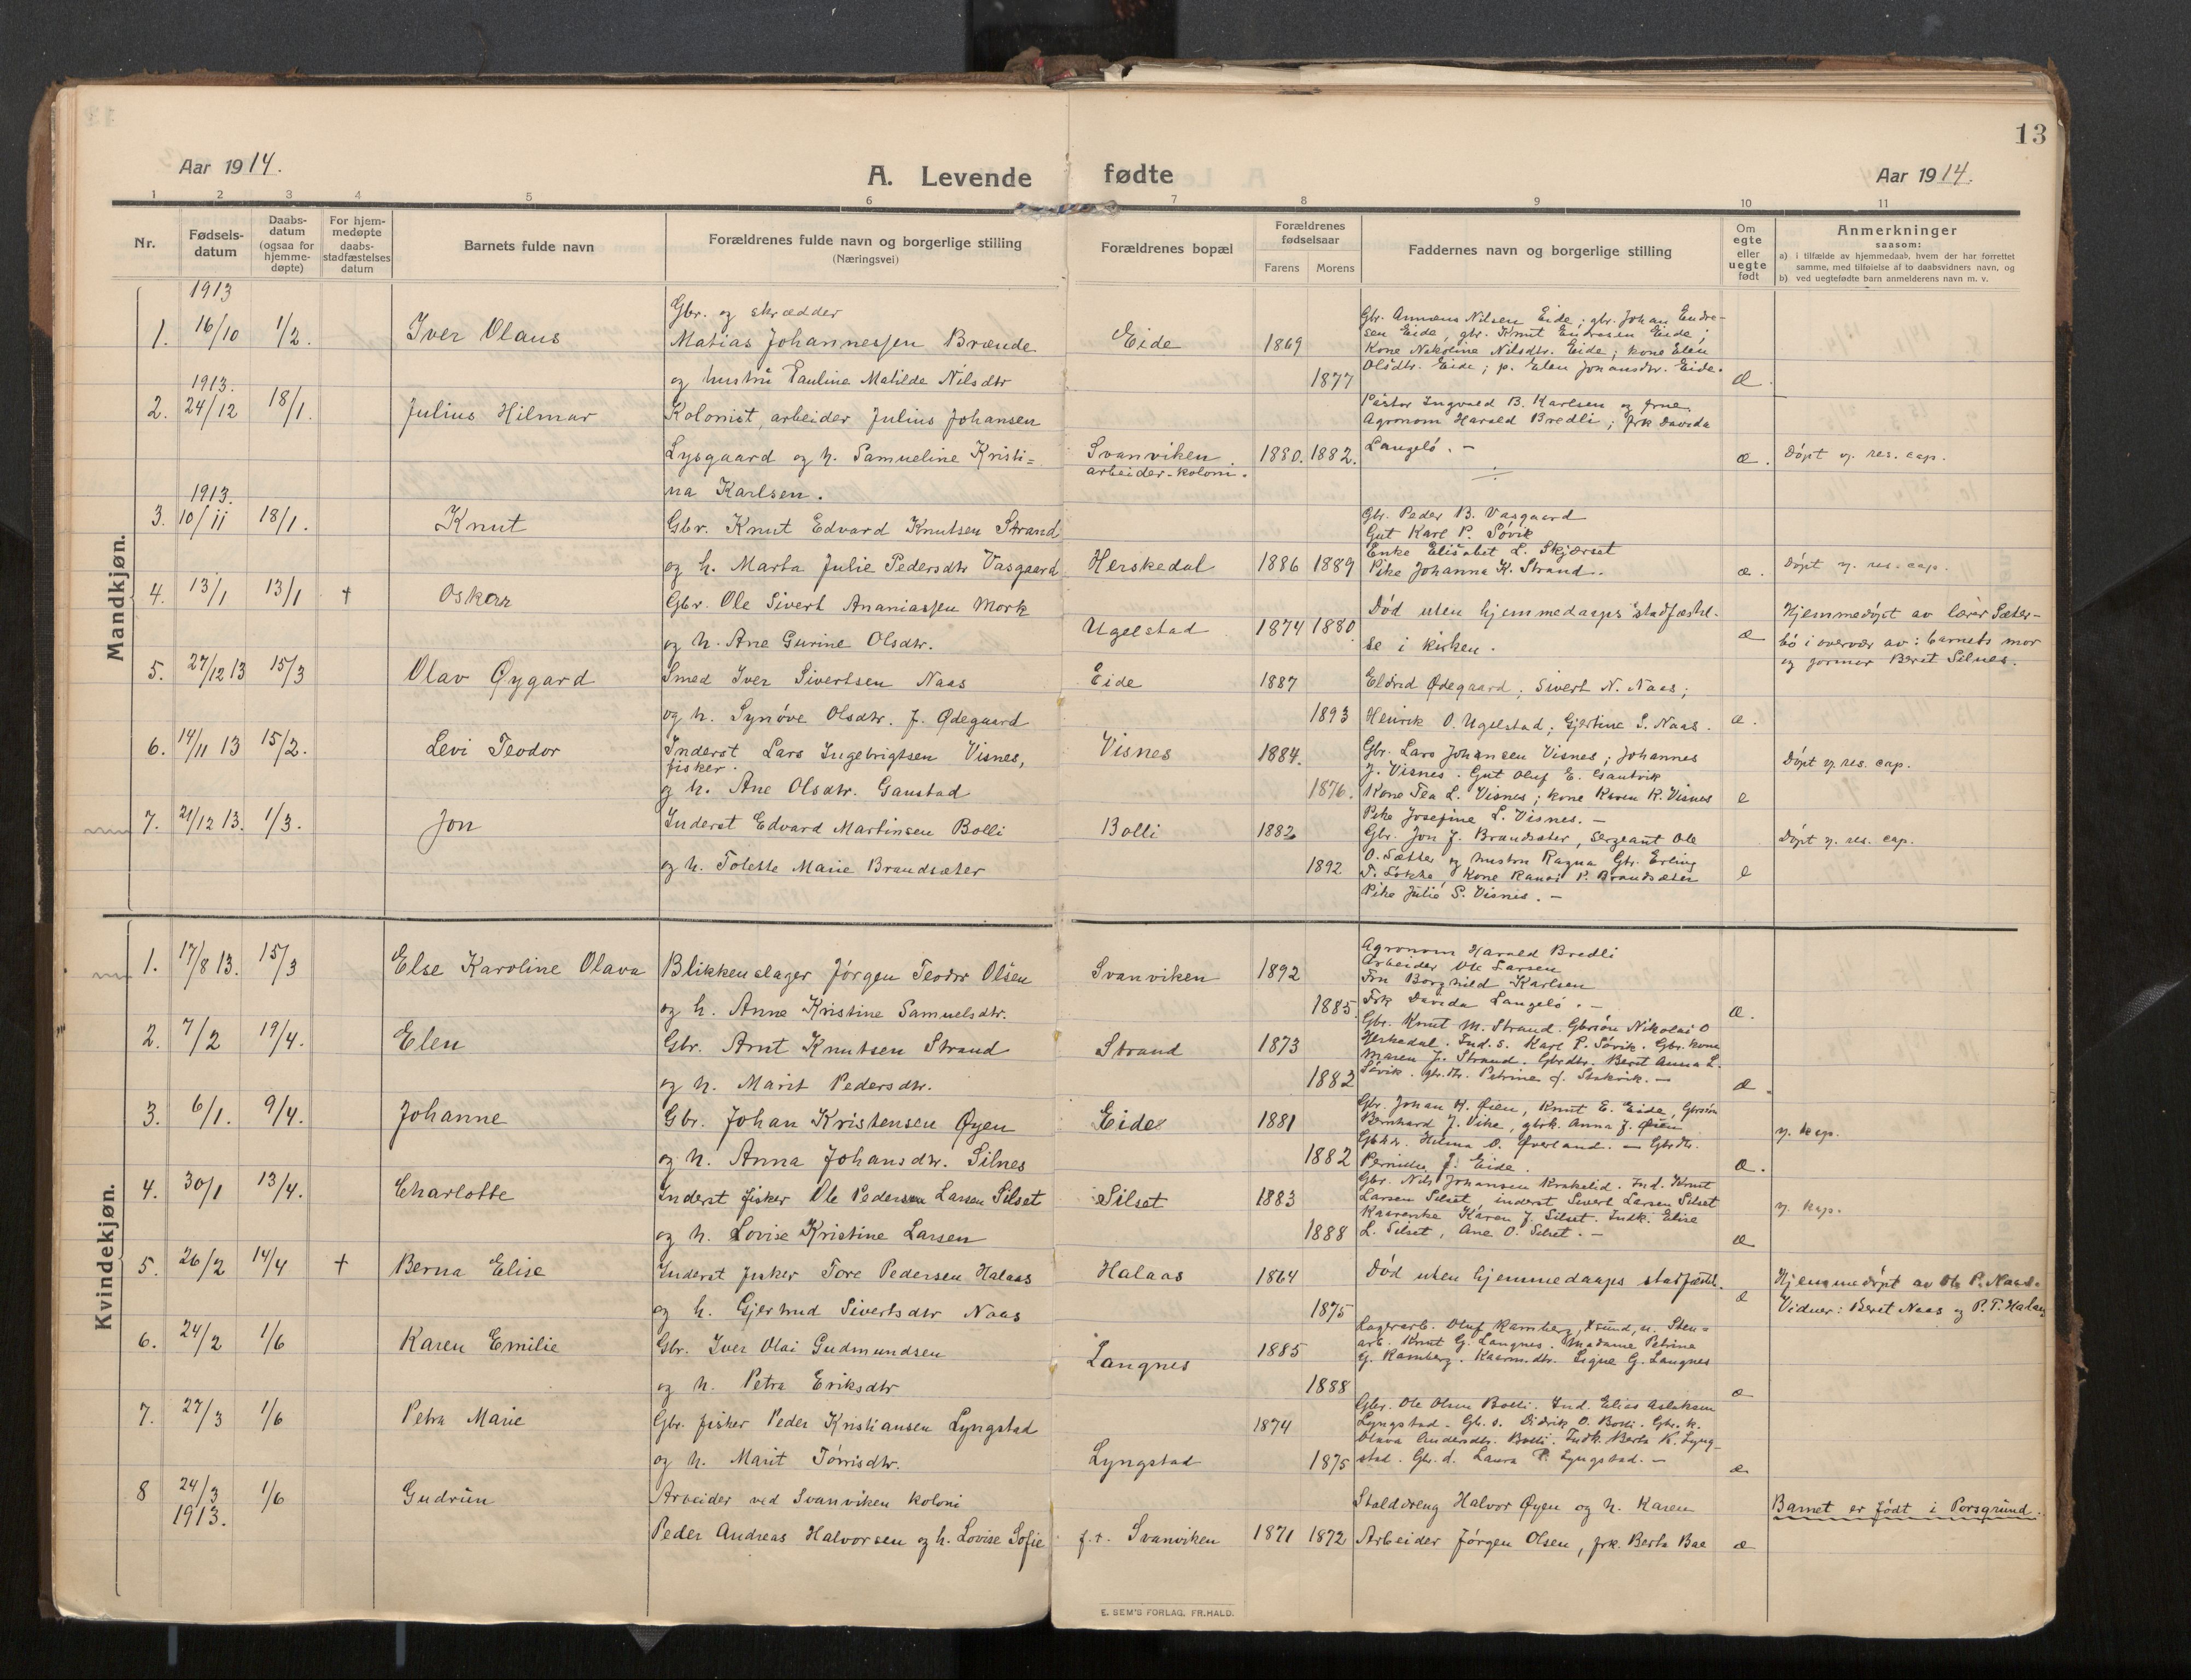 13
Aar 1914.
A. Levende fødte
Aar 1914.
1 2 3 4 5 6 7 8 9 10 11
Nr.
Fødsels-
datum
Daabs-
datum
(ogsaa for
hjemme-
døpte)
For hjem-
medøpte
daabs-
stadfæstelses
datum
Barnets fulde navn
Forældrenes fulde navn og borgerlige stilling
(Næringsvei)
Forældrenes bopæl
Forældrenes
fødselsaar
Farens Morens
Faddernes navn og borgerlige stilling
Om
egte
eller
uegte
født
Anmerkninger
saasom:
a) i tilfælde av hjemmedaab, hvem der har forrettet
samme, med tilføielse af to daabsvidners navn, og
b) ved uegtefødte barn anmelderens navn m. v.
Mandkjøn.
1913
1. 16/10 1/2. Iver Olaus
Gbr. og skrædder
Matias Johannessen Brænde
og hustru Pauline Matilde Nilsdtr
Eide 1869
1877
Gbr. Nilsen Eide; gbr. Johan Endre-
sen Eide, gbr. Knut Endresen Eide;
Kone Nilsdtr. Eide; kone Elen
Olsdtr. Eide; p. Elen Johansdtr. Eide.
æ.
1913.
2. 24/12 18/1. Julius Hilmar
Kolonist, arbeider Julius Johansen
Lysgaard og h. Samueline Kristi=
na Karlsen.
Svanviken
arbeider-koloni.
1880. 1882.
Pastor Ingvald B. Karlsen og frue.
Agronom Harald Bredli; frk Davida
Langelø. —
æ.
Døpt v. res. cap.
1913.
3. 10/11 18/1. Knut
Gbr. Knut Edvard Knutsen Strand
og h. Marta Julie Pedersdtr Vasgaard
Herskedal 1886 1889
Gbr. Peder B. Vasgaard
Gut Karl P. Søvik
Enke Elisabet L. Skjærset
Pike Johanna K. Strand.
æ.
Døpt v. res. cap.
4. 13/1 13/1 † Oskar
Gbr. Ole Sivert Ananiassen Mork
og h. Ane Gurine Olsdtr.
Ugelstad 1874 1880
Død uten hjemmedaaps stadfæstel-
se i kirken.
æ
Hjemmedøpt av lærer Sæter-
bø i overvær av: barnets mor
og jormor Beret Silnes.
5. 27/12 13 15/3 Olav Øygard
Smed Iver Sivertsen Naas
og h. Synøve Olsdtr. f. Ødegaard
Eide 1887
1893
Eldrid Ødegaard; Sivert N. Naas;
Henrik O. Ugelstad; Gjertine S. Naas.
æ.
6. 14/11 13 15/2. Levi Teodor
Inderst Lars Ingebrigtsen Visnes,
fisker.
og h. Ane Olsdtr. Gaustad
Visnes 1884.
1876.
Gbr. Lars Johansen Visnes; Johannes
J. Visnes. Gut Oluf E. Gautvik
Kone Tea L. Visnes; kone Karen K. Visnes
Pike Josefine L. Visnes. —
e
Døpt v. res. cap.
7. 21/12 13. 1/3. Jon
Inderst Edvard Martinsen Bolli
og h. Tolette Marie Brandsæter
Bolli 1882
1892
Gbr. Jon J. Brandsæter, Sergeant Ole
O. Sætter og hustru Ragna Gbr. Erling
Kone P. Brandsæter
Pike Julie S. Visnes. —
e
Døpt v. res. cap.
Kvindekjøn.
1. 17/8 13. 15/3 Else Karoline Olava
Blikkenslager Jørgen Teodor Olsen
og h. Anne Kristine Samuelsdtr.
Svanviken 1892
1885.
Agronom Harald Bredli
Arbeider Ole Larsen
Fru Borghild Karlsen
Frk Davida Langelø. —
æ.
2. 7/2 19/4. Elen
Gbr. Arnt Knutsen Strand
og h. Marit Pedersdtr.
Strand 1873
1882
Gbr. Knut M. Strand. Gbrsøn Nikolai O
Herskedal. Ind. s. Karl P. Søvik. Gbr. kone
Maren J. Strand. Gbrdtr. Berit Anna L.
Søvik. gbr.dtr. Petrine J. Stakvik. —
æ.
3. 6/1. 9/4. Johanne
Gbr. Johan Kristensen Øyen
og h. Anna Johansdtr. Silnes
Eide 1881
1882
Gbr. Johan H. Øien, Knut E. Eide, Gbrsøn
Bernhard J. Vike, gbrk. Anna J. Øien
O. Øverland. — Gbrdtr.
Pernille J. Eide.
æ.
v. kap.
4. 30/1 13/4. Charlotte
Inderst fisker Ole Pedersen Larsen Silset
og h. Lovise Kristine Larsen
Silset 1883
1888
Gbr. Nils Johansen Krakelid. Ind. Knut
Larsen Silset, inderst Sivert Larsen Silset
Kaarenke Karen J. Silset. Indk. Elise
L. Silset, Ane O. Silset. —
æ
v. kap.
5. 26/2 14/4 † Berna Elise
Inderst fisker Tore Pedersen Halaas
og h. Gjertrud Sivertsdtr Naas
Halaas 1864
1875
Død uten hjemmedaaps stadfæstel.
æ
Hjemmedøpt av Ole P. Naas.
Vidner: Beret Naas og P. T. Halaas
6. 24/2 1/6 Karen Emilie
Gbr. Iver Olai Gudmundsen
og h. Petra Eriksdtr
Langnes 1885
1888
Lagerarb. Oluf Ramberg, Xsund, u. Sten=
arb. Knut G. Langnes. Madame Petrine
G. Ramberg. Kaarm.dtr. Signe G. Langnes
æ
7. 27/3 1/6 Petra Marie
Gbr. fisker Peder Kristiansen Lyngstad
og h. Marit Tørrisdtr.
Lyngstad 1874
1875
Gbr. Ole Olsen Bolli. Ind. Elias Aslaksen
Lyngstad. Gb. s. Didrik O. Bolli. Gbr. k.
Olava Andersdtr. Bolli. Indk. Berta K. Lyng-
stad. Gbr. d. Laura P. Lyngstad. —
æ
8 24/3 1913. 1/6 Gudrun
Arbeider ved Svanviken koloni
Peder Andreas Halvorsen og h. Lovise Sofie
f.t. Svanviken 1871 1872
Stalddreng Halvor Øyen og h. Karen
Arbeider Jørgen Olsen, frk. Berta Bae
æ
Barnet er født i Porsgrund.
E. SEM'S FORLAG, FR.HALD.